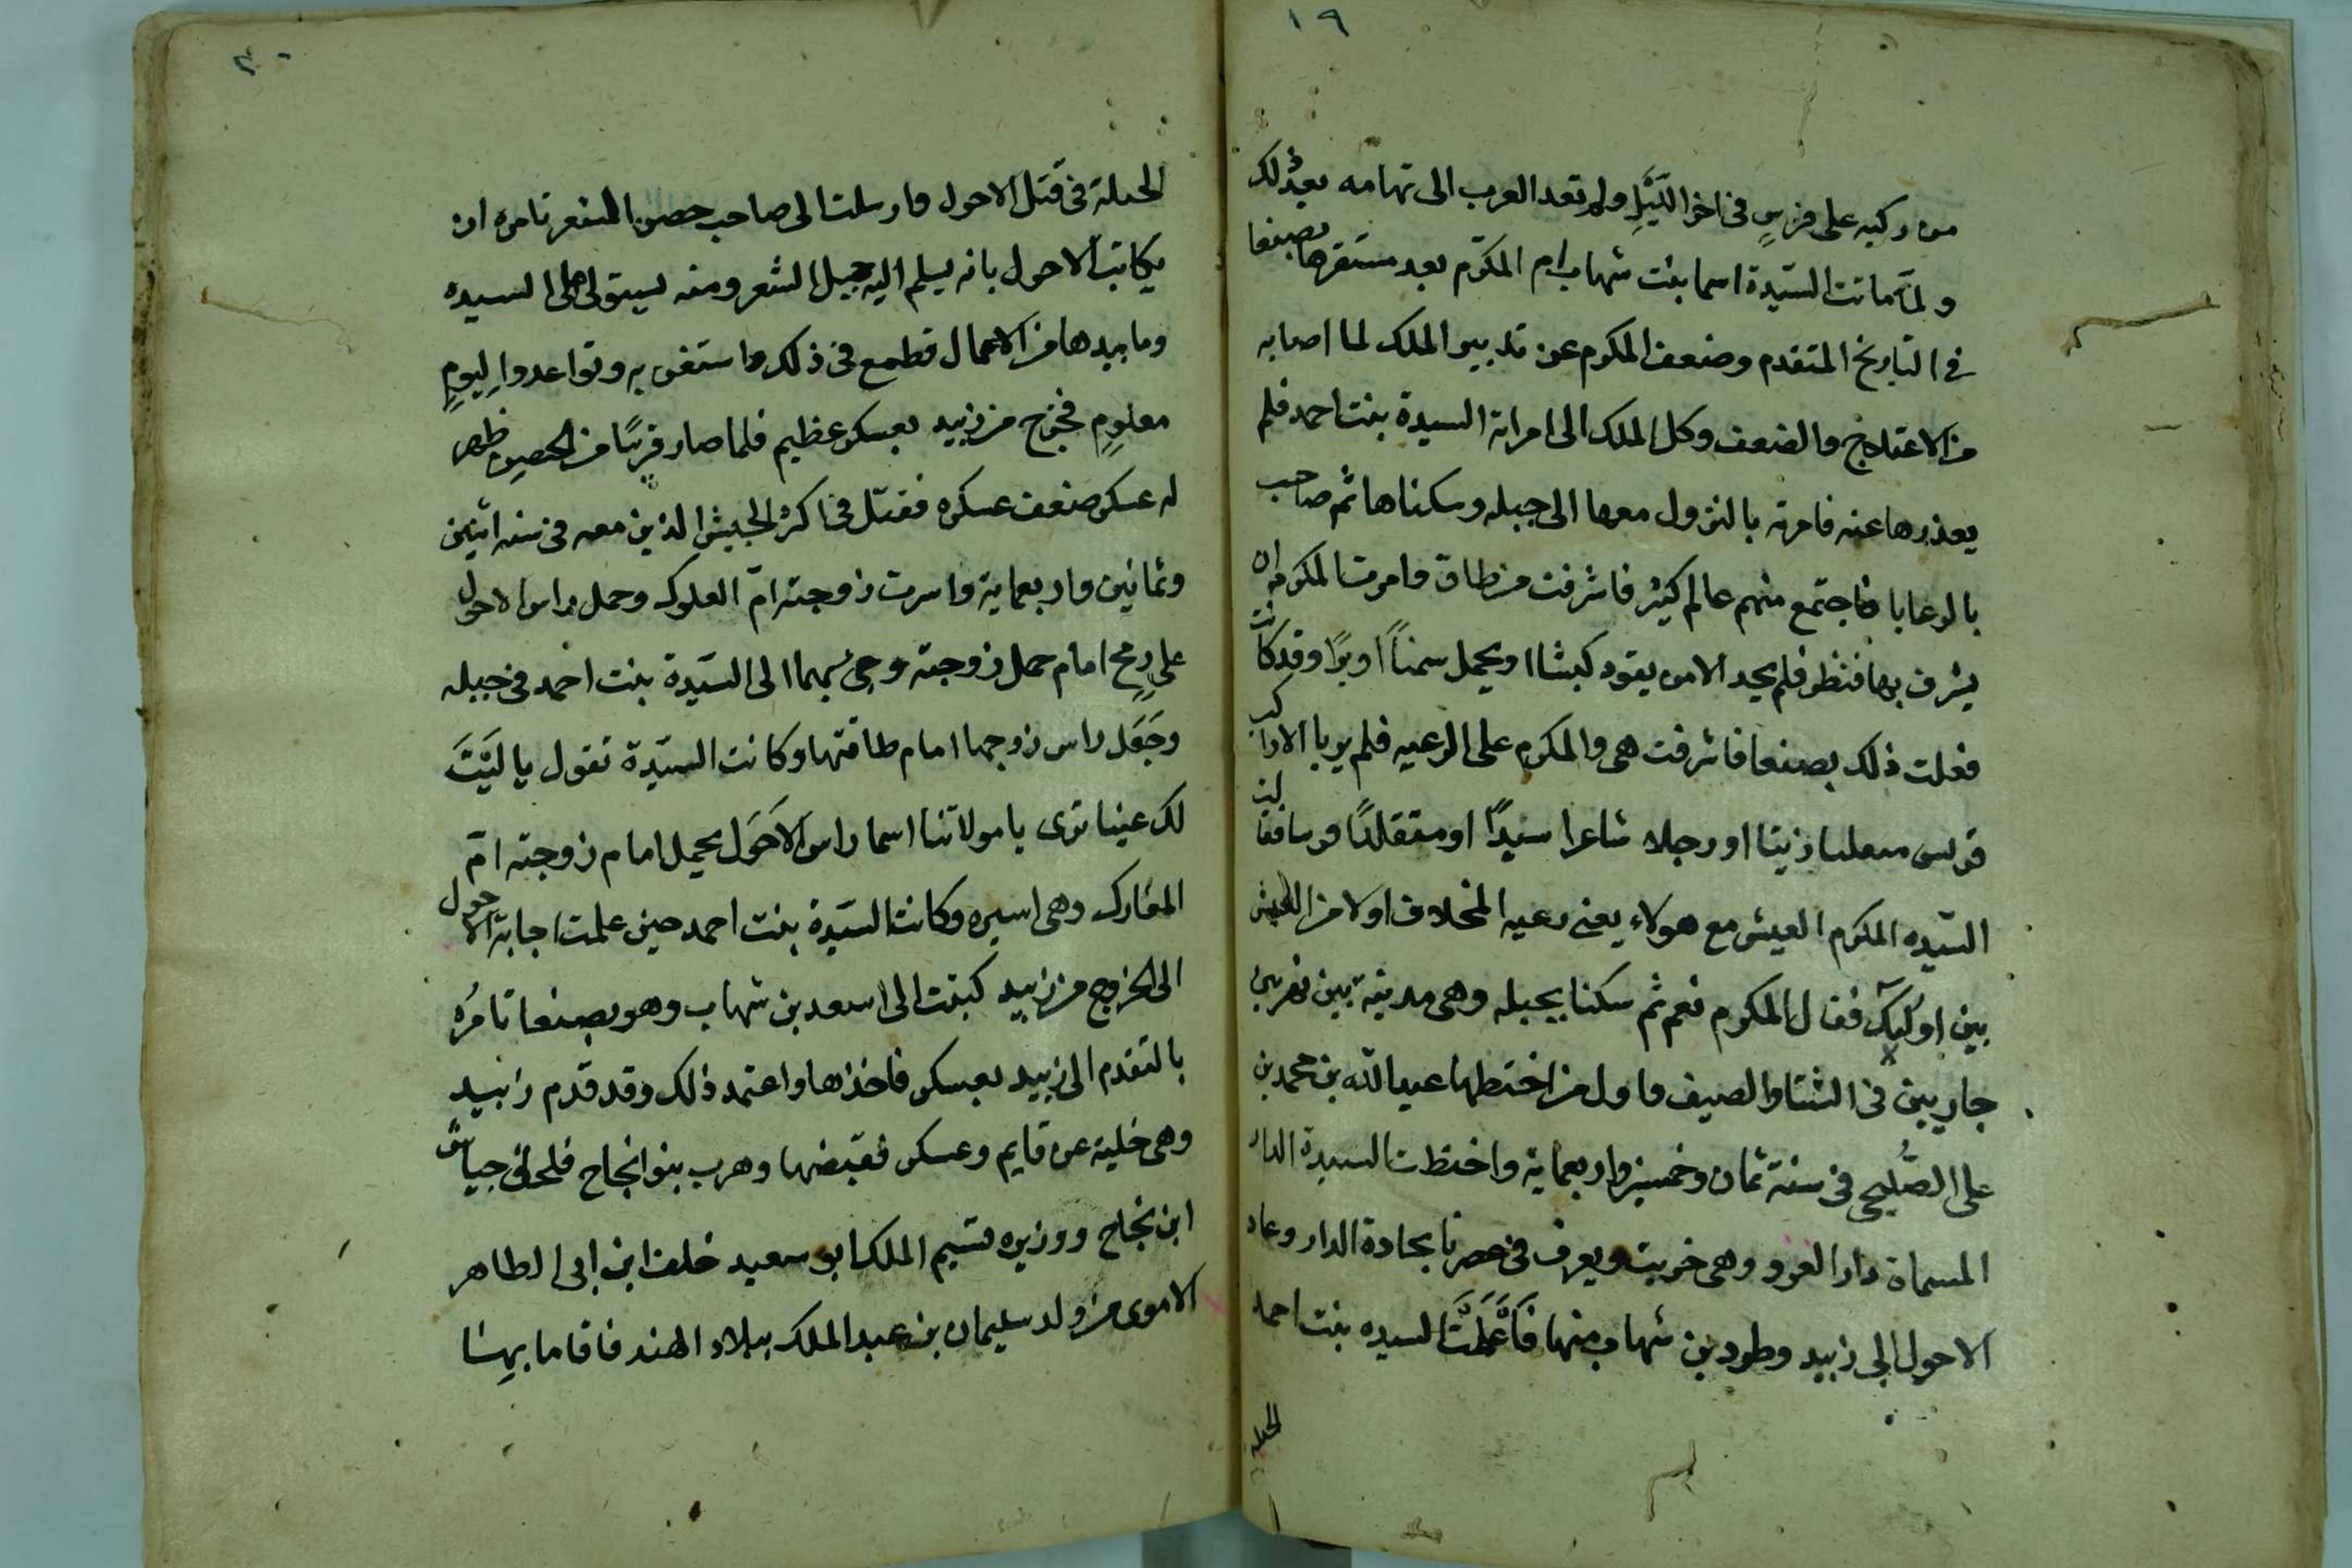 ١٩
من ركبه على فرسٍ فى اخر اللَّيَلِ ولم تعد العرب الى تهامه بعد ذلك
ولمّا ماتت السّيّدة اسما بنت شهاب ام المكرّم بعد مستقرها بصنعا
فى التاريخ المتقدم وضعف المكرم عن تدبير الملك لما اصابه
من الاختلاج والضعف وكل الملك الى امراته السيدة بنت احمد فلم
يعذرها عنه فامرته بالنزول معها الى جبله وسكناها ثم صاحب
بالرعايا فاجتمع منهم عالم كثير فاشرفت من طاق وامرت المكرم ان
يشرف بها فنظر فلم يجد الا من يقود كبشا او يحمل سمناً او برًا وقد كانت
فعلت ذلك بصنعا فاشرفت هى والمكرم على الرعيه فلم يريا الا راكب
فرس او رجلا شاعرا سيدًا او متقلدًا
السّيده المكرم العيش مع هولاء يعنى رعيه المخلاف اولا من العيش
بين اولئك فقال المكرم نعم ثم سكنا بجبله وهى مدينة بين نهرين
جاريين فى الشتا والصيف واول من اختطها عبد الله بن محمد بن
على الصُّليحى فى سنة ثمان وخمسين واربعماية واختطت السيدة الدار
المسماة دار العرو وهى خربت ويعرف فى عصرنا بحادة الدار وعاد
الاحول الى زبيد وطرد بن شهاب منها فَاَعْمَلَتَ السيده بنت احمد
الحيله
٢٠
الحيلة فى قتل الاحول وارسلت الى صاحب حصن الشعر تامره ان
يكاتب الاحول بانه يسلم اليه جبل الشعر ومنه يستولى على السيده
وما بيدها من الاعمال فطمع فى ذلك واستغنى به وتواعدوا ليومٍ
معلومٍ فخرج من زبيد بعسكر عظيم فلما صار قريبًا من الحصين ظهر
له عسكر ضعف عسكره فقتل فى اكثر الجيش الذين معه فى سنه اثنين
وثمانين واربعماية واسرت زوجته امّ المعارك وحمل راس الاحول
على رمحٍ امام حمل زوجته وجئ بهما الى السّيّدة بنت احمد فى جبله
وجَعَل راس زوجها امام طاقتها وكانت السيّدة تقول يا ليَتَ
لك عينا ترى يا مولاتنا اسما راس الاَحَول يحمل امام زوجته امّ
المعارك وهى اسيره وكانت السّيّدة بنت احمد حين علمت اجابة الاحول
الى الخروج من زبيد كتبت الى اسعد بن شهاب وهو بصنعا تامُره
بالتقدم الى زبيد بعسكر فاخذها واعتمد ذلك وقد قدم زبيد
وهى خلية عن قايم وعسكر فقبضها وهرب بنوا نجاح فلحق جياش
ابن نجاح ووزيره قسيم الملك ابو سعيد خلف ابن ابى الطاهر
الاموى من ولد سليمان بن عبد الملك ببلاد الهند فاقاما بها